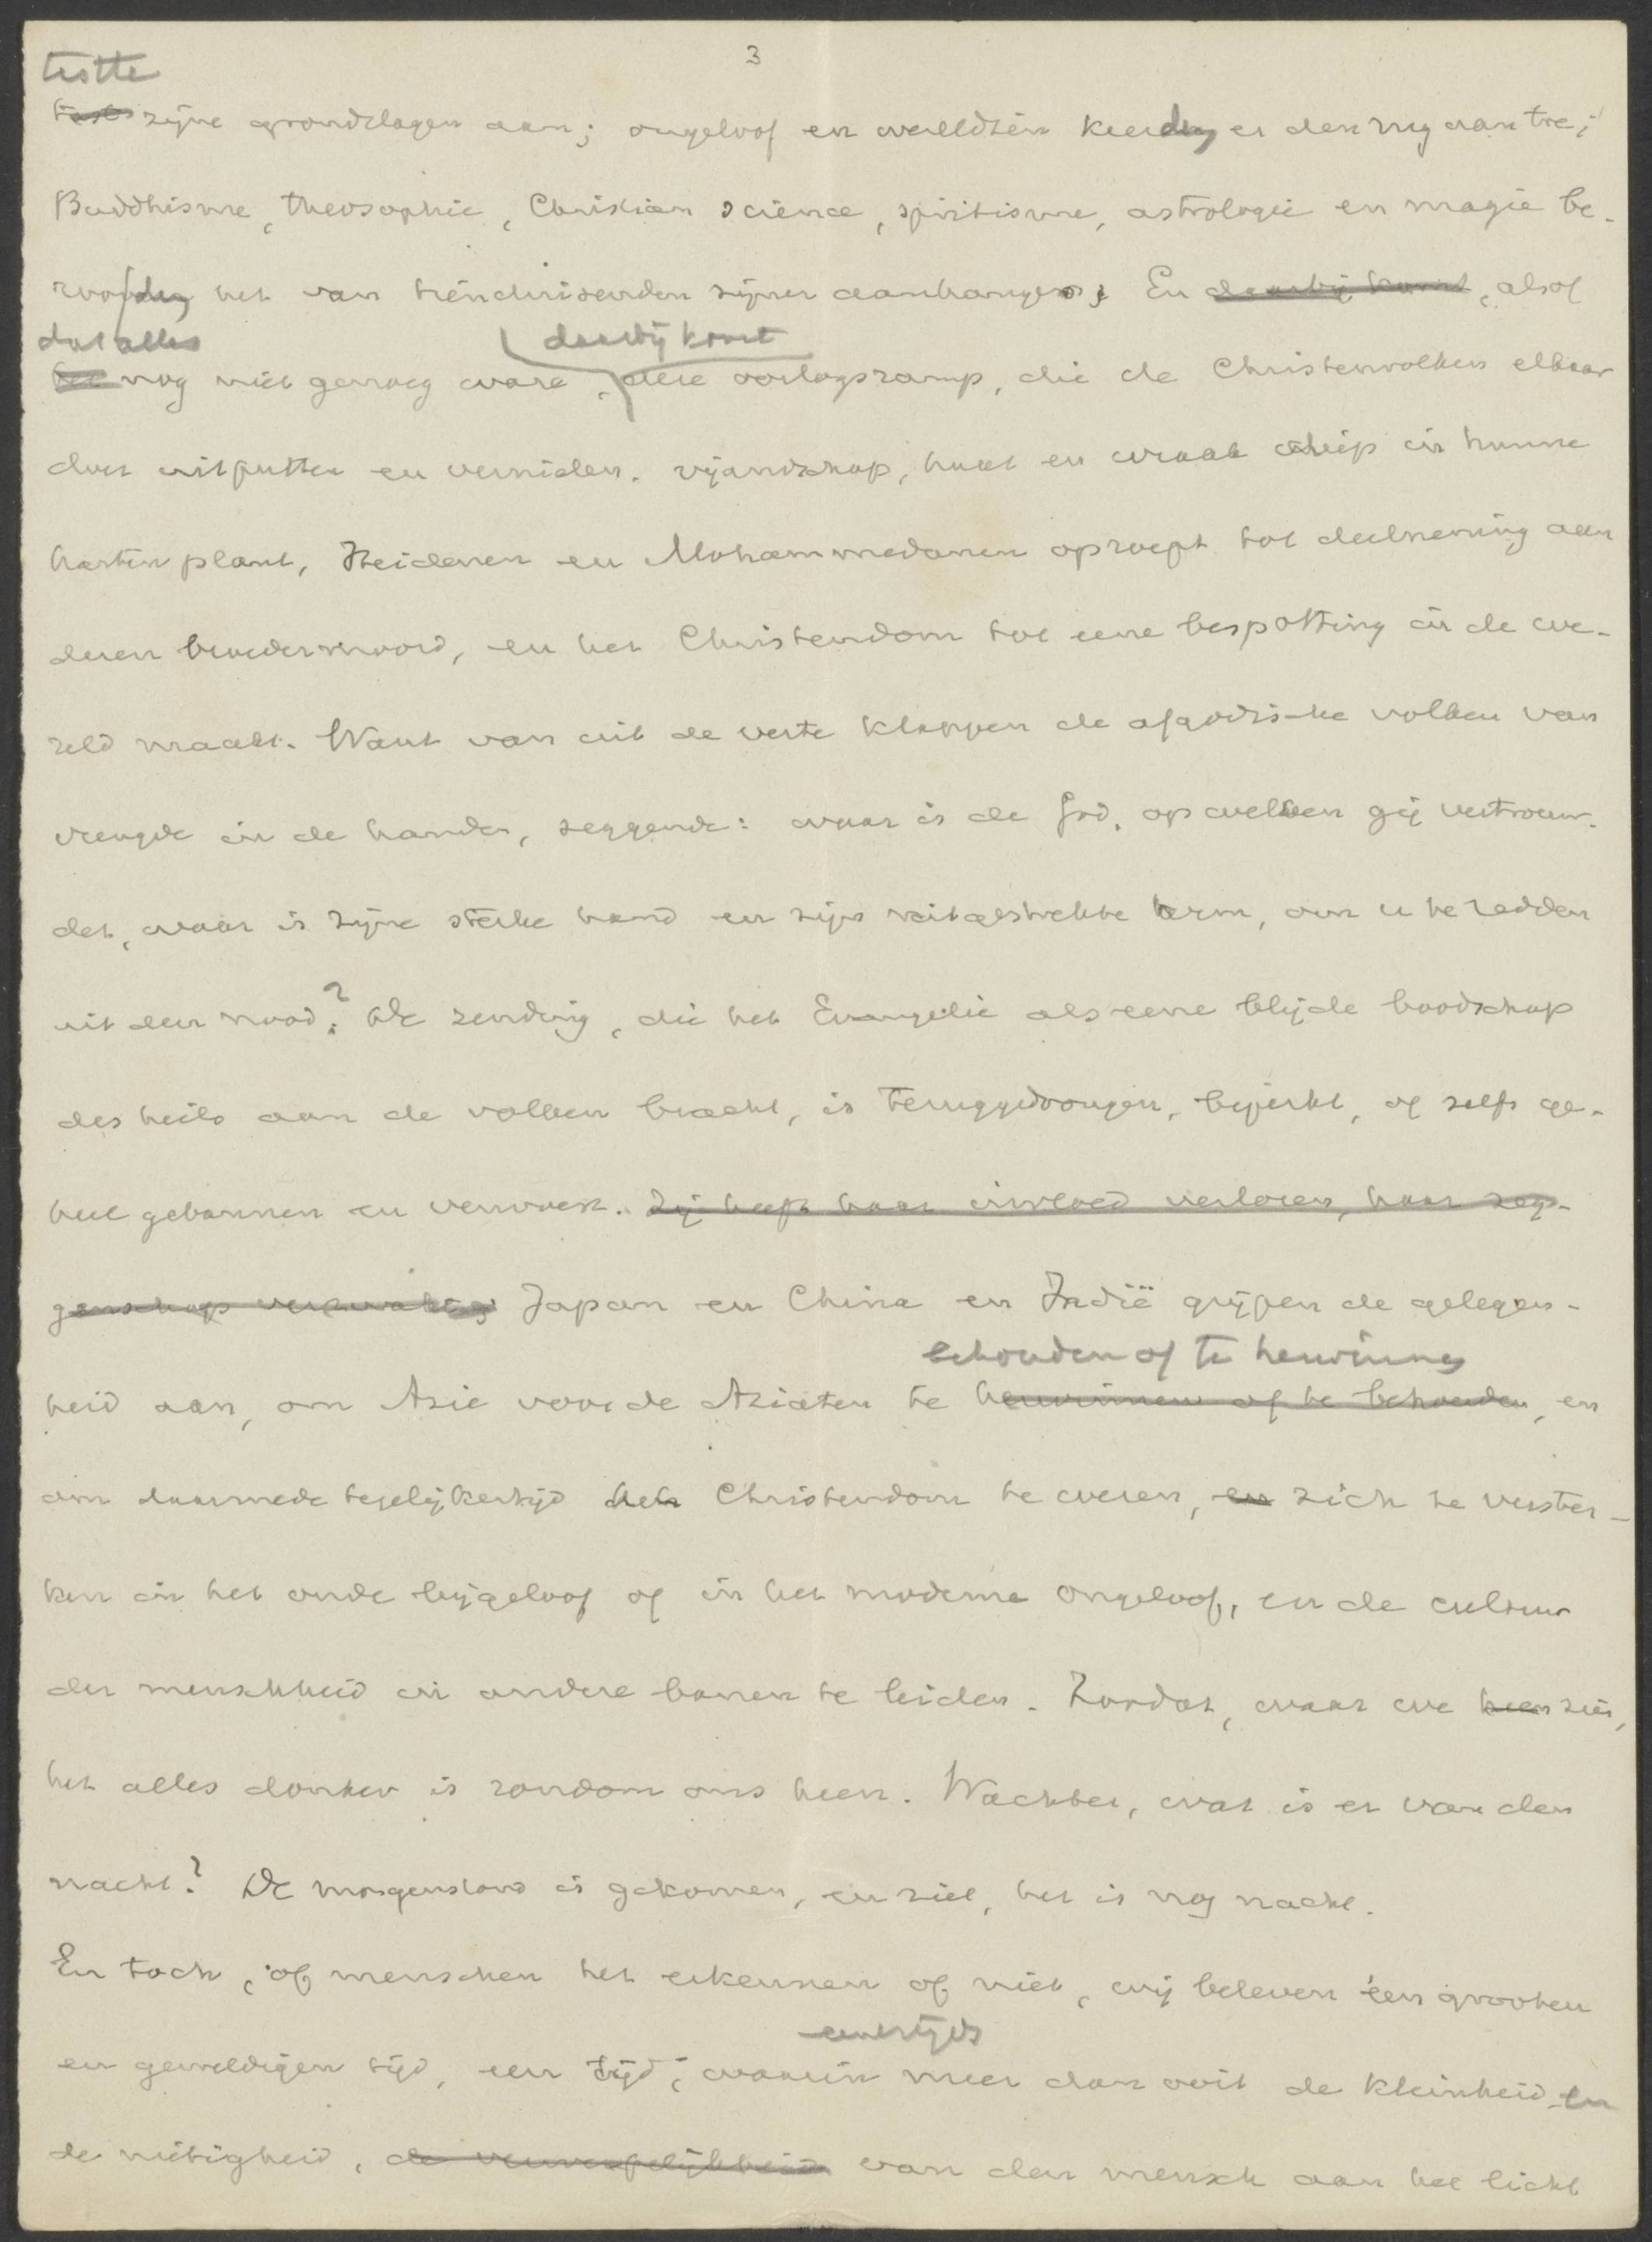 3
tastte
tast zijne grondslagen aan; ongeloof en wereldzin keerden er den rug aan toe;
Buddhisme, theosophie, Christian science, spiritisme, astrologie en magie be-
roofden het van tienduizenden zijner aanhangers; En daarbij komt, alsof
dat alles daarbij komt
het nog niet genoeg ware, deze oorlogsramp, die de Christenvolken elkaar
doet uitputten en vernielen. vijandschap, haat en wraak diep in hunne
harten plant, Heidenen en Mohammedanen oproept tot deelneming aan
dezen broedermoord, en het Christendom tot eene bespotting in de we-
reld maakt. Want van uit de verte klappen de afgodische volken van
vreugde in de handen, zeggende: waar is de God, op welken gij vertrouw-
det, waar is zijne sterke hand en zijn uitgestrekte arm, om u te redden
uit den nood? De zending, die het Evangelie als eene blijde boodschap
des heils aan de volken bracht, is teruggedrongen, beperkt, of zelfs ge-
heel gebannen en verwoest. Zij heeft haar invloed verloren, haar zeg-
genschap verzwakt; Japan en China en Indië grijpen de gelegen-
behouden of te herwinnen
heid aan, om Azie voor de Aziaten te herwinnen of te behouden, en
om daarmede tegelijkertijd het Christendom te weren, en zich te verster-
ken in het oude bijgeloof of in het moderne ongeloof, en de cultuur
der menschheid in andere banen te leiden. Zoodat, waar we heen zien,
het alles donker is rondom ons heen. Wachter, wat is er van den
nacht? De morgenstond is gekomen, en ziet, het is nog nacht.
En toch, of menschen het erkennen of niet, wij beleven een grooten
eenerzijds
en geweldigen tijd, een tijd, waarin meer dan ooit de kleinheid en
de nietigheid, de verwerpelijkheid van den mensch aan het licht